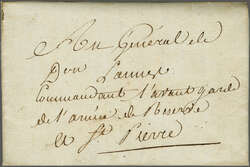 Au Général de
Don Lannes
Commandant l'avant garde
de l'armée de Reserve
à St Pierre